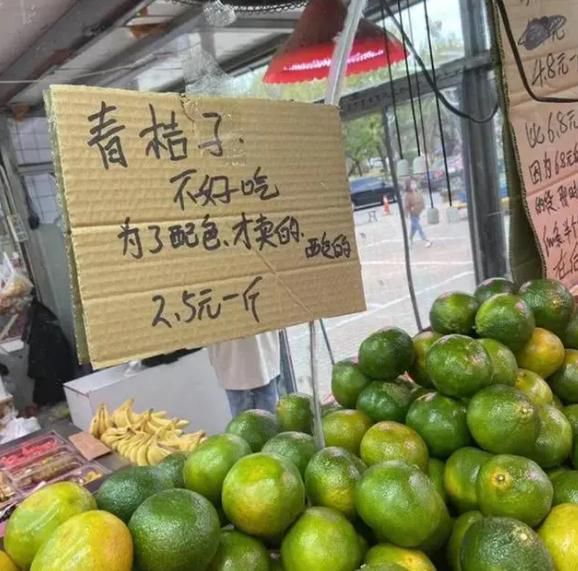 青桔子.
不好吃
为了配色、才卖的.
色的
2.5元一斤
元
4.8元一
比6.8元
因为6.8元
的